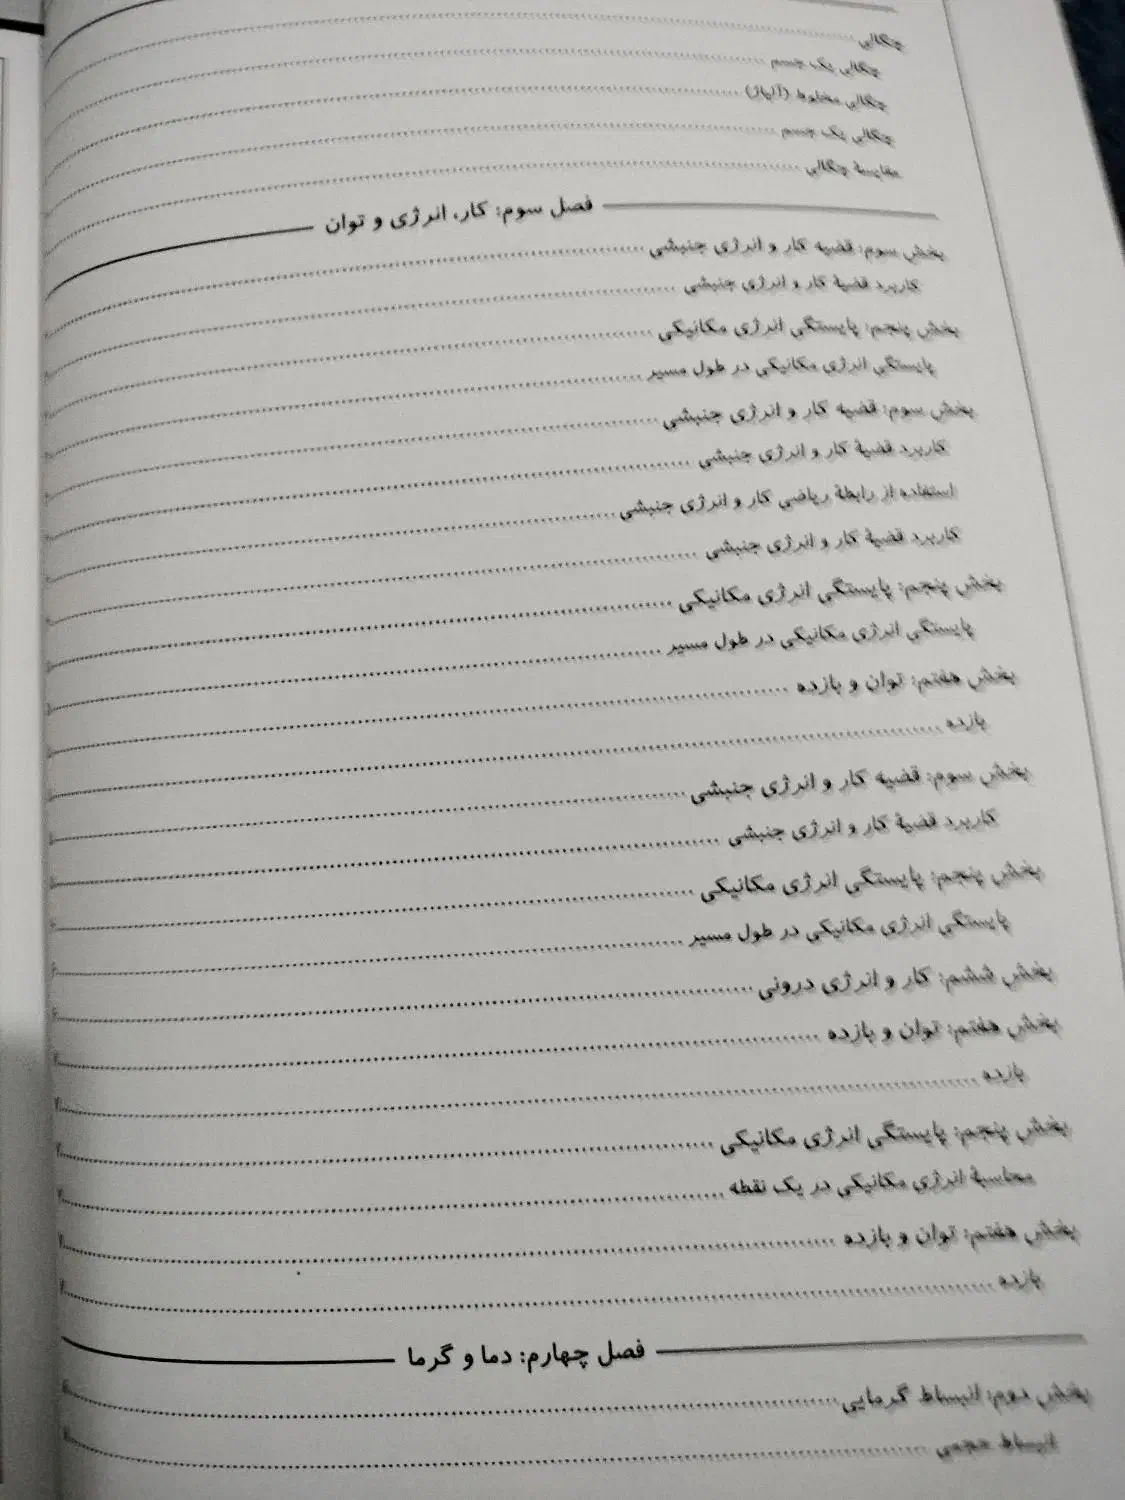 چگالی
چگالی یک جسم
چگالی مخلوط (آلیاژ)
چگالی یک جسم
مقایسهٔ چگالی
فصل سوم: کار، انرژی و توان
بخش سوم: قضیه کار و انرژی جنبشی
کاربرد قضیهٔ کار و انرژی جنبشی
بخش پنجم: پایستگی انرژی مکانیکی
پایستگی انرژی مکانیکی در طول مسیر
بخش سوم: قضیه کار و انرژی جنبشی
کاربرد قضیهٔ کار و انرژی جنبشی
استفاده از رابطهٔ ریاضی کار و انرژی جنبشی
کاربرد قضیهٔ کار و انرژی جنبشی
بخش پنجم: پایستگی انرژی مکانیکی
پایستگی انرژی مکانیکی در طول مسیر
بخش هفتم: توان و بازده
بازده
بخش سوم: قضیه کار و انرژی جنبشی
کاربرد قضیهٔ کار و انرژی جنبشی
بخش پنجم: پایستگی انرژی مکانیکی
پایستگی انرژی مکانیکی در طول مسیر
بخش ششم: کار و انرژی درونی
بخش هفتم: توان و بازده
بازده
بخش پنجم: پایستگی انرژی مکانیکی
محاسبهٔ انرژی مکانیکی در یک نقطه
بخش هفتم: توان و بازده
بازده
فصل چهارم: دما و گرما
بخش دوم: انبساط گرمایی
انبساط حجمی